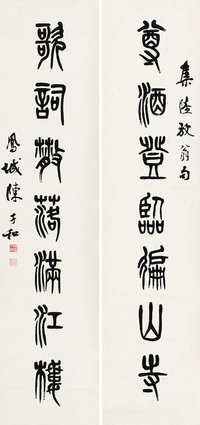 尊酒登臨徧山寺
集陸放翁句
歌詞散落滿江樓
鳳城陳子和